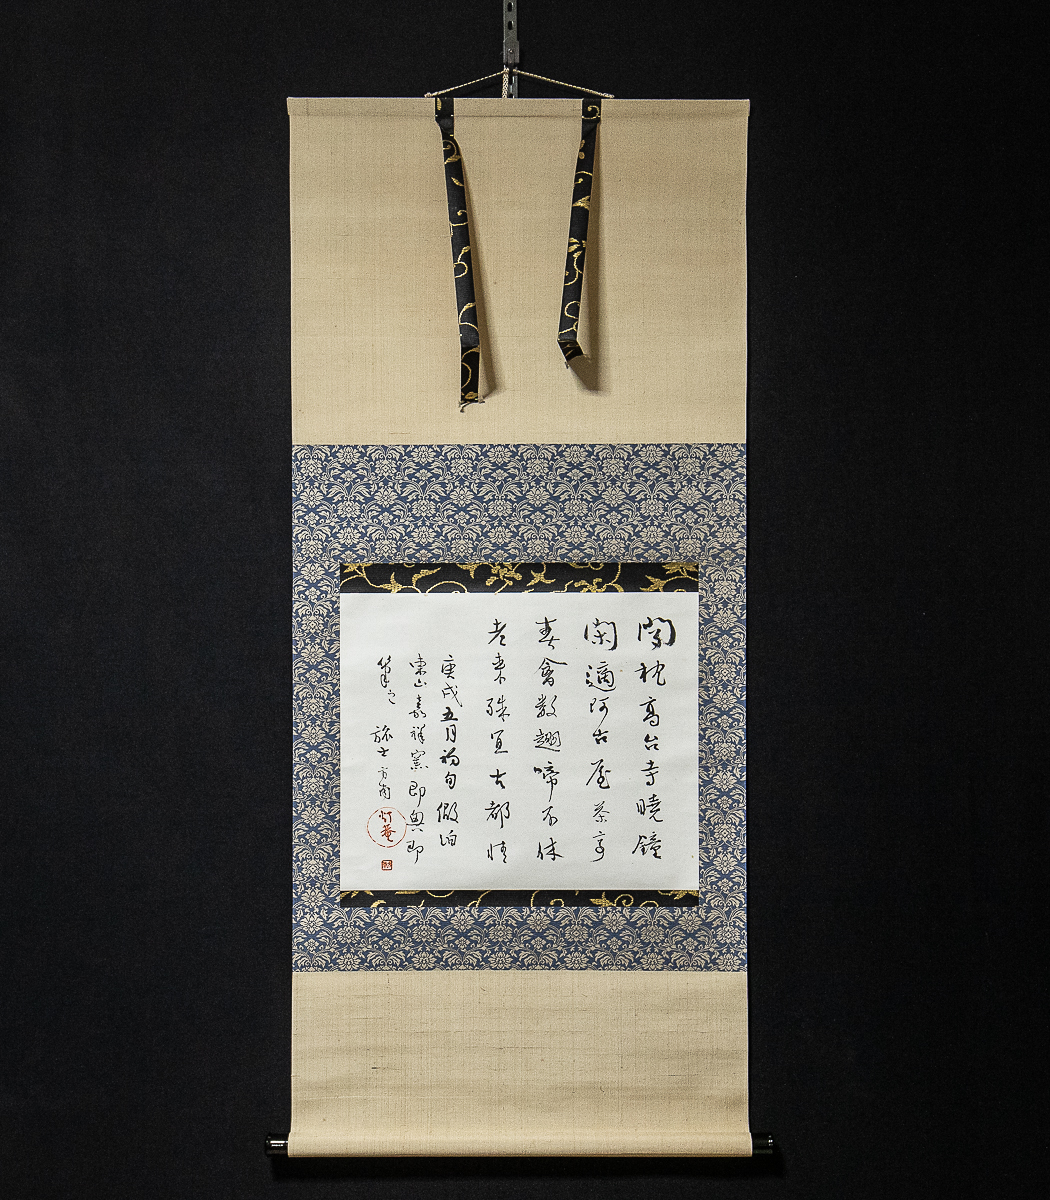 聞枕高台寺曉鐘
閑適阿古屋茶亭
春禽数啼不休
老来殊宜古都情
庚戌五月初旬假泊
東山嘉祥窯即興即
筆之 旅士
灯菴